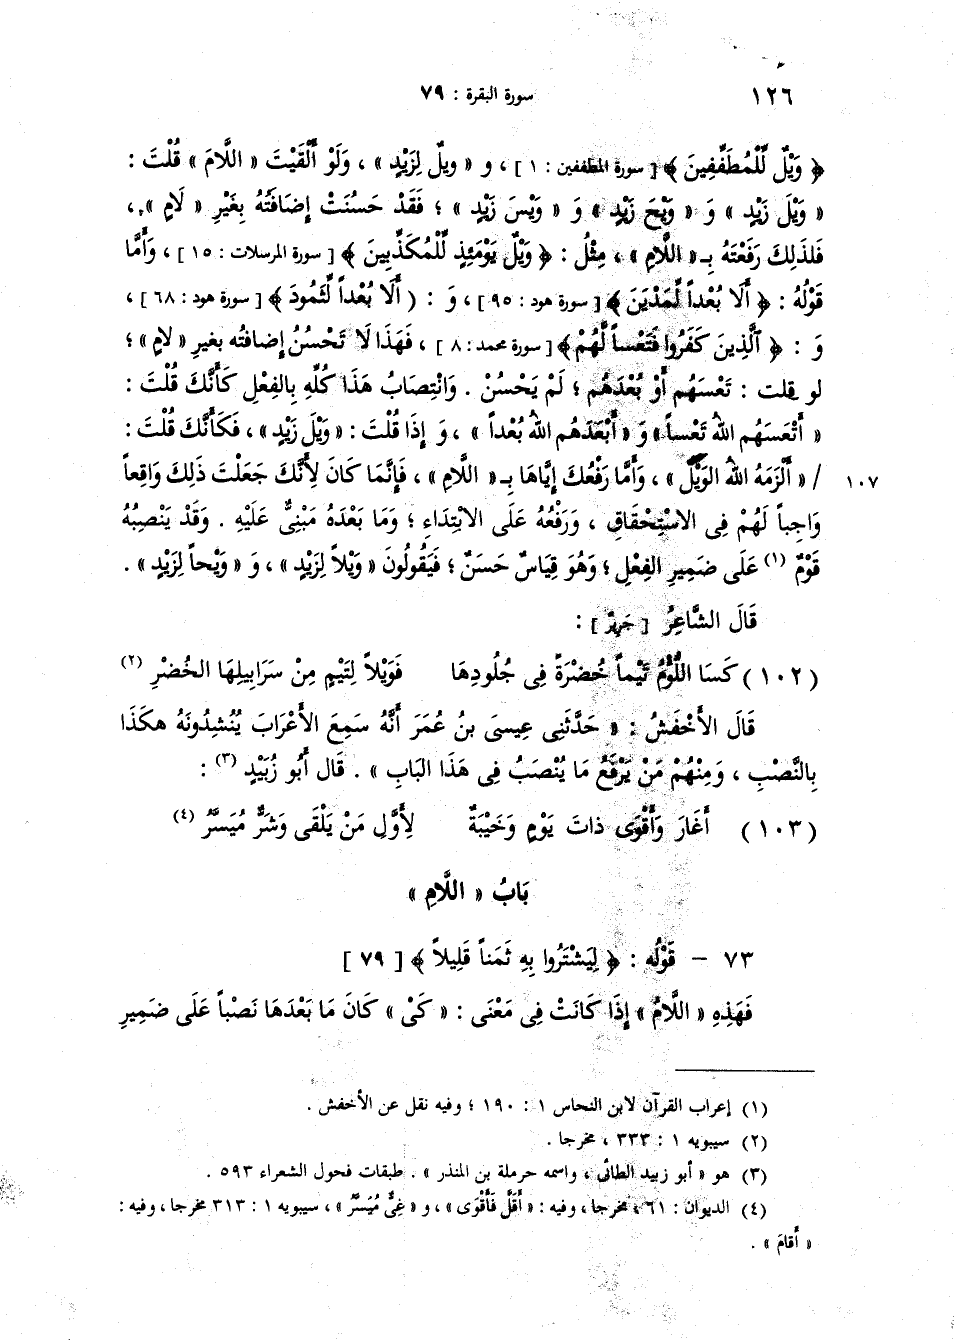 ١٢٦
سورة البقرة : ٧٩
﴿ وَيْلٌ لِّلْمُطَفِّفِينَ ﴾ [ سورة المطففين : ١ ] ، و « ويلٌ لِزَيْدٍ » ، وَلَوْ أَلْقَيْتَ « اللَّامَ » قُلْتَ :
« وَيْلَ زَيْدٍ » وَ « وَيْحَ زَيْدٍ » وَ « وَيْسَ زَيْدٍ » ؛ فَقَدْ حَسُنَتْ إضَافَتُهُ بِغَيْرِ « لَامٍ » ،
فَلذَلِكَ رَفَعْتَهُ بِـ « اللَّامِ » ، مِثْلُ : ﴿ وَيْلٌ يَوْمَئِذٍ لِّلْمُكَذِّبِينَ ﴾ [ سورة المرسلات : ١٥ ] ، وَأَمَّا
قَوْلُهُ : ﴿ أَلَا بُعْداً لِّمَدْيَنَ ﴾ [ سورة هود : ٩٥ ] ، وَ : ( أَلَا بُعْداً لِّثَمُودَ ﴾ [ سورة هود : ٦٨ ] ،
وَ : ﴿ الَّذِينَ كَفَرُوا فَتَعْساً لَّهُمْ ﴾ [ سورة محمد : ٨ ] ، فَهَذَا لَا تَحْسُنُ إضافتُه بغيرِ « لامٍ » ؛
لو قلت : تَعْسَهُم أَوْ بُعْدَهُم ؛ لَمْ يَحْسُنْ . وَانْتِصَابُ هَذَا كُلِّهِ بِالفِعْلِ كَأَنَّكَ قُلْتَ :
« أَتْعَسَهُم اللهُ تَعْساً » وَ « أَبْعَدَهُم اللهُ بُعْداً » ، وَ إذَا قُلْتَ : « وَيْلَ زَيْدٍ » ، فَكَأَنَّكَ قُلْتَ :
١٠٧ / « أَلْزَمَهُ اللهُ الوَيْلَ » ، وَأَمَّا رَفْعُكَ إيَّاهَا بِـ « اللَّامِ » ، فَإِنَّمَا كَانَ لِأَنَّكَ جَعَلْتَ ذَلِكَ وَاقِعاً
وَاجِباً لَهُمْ فِى الاسْتِحْقَاقِ ، وَرَفْعُهُ عَلَى الابْتِدَاءِ ؛ وَمَا بَعْدَهُ مَبْنِىٌّ عَلَيْهِ . وَقَدْ يَنْصِبُهُ
قَوْمٌ (١) عَلَى ضَمِيرِ الفِعْلِ ؛ وَهُوَ قِيَاسٌ حَسَنٌ ؛ فَيَقُولُونَ « وَيْلاً لِزَيْدٍ » ، وَ « وَيْحاً لِزَيْدٍ » .
قَالَ الشَّاعِرُ [ جَرِيرٌ ] :
( ١٠٢ ) كَسَا اللُّؤْمُ تَيْماً خُضْرَةً فِى جُلُودِهَا فَوَيْلاً لِتَيْمٍ مِنْ سَرَابِيلِهَا الخُضْرِ (٢)
قَالَ الأَخْفَشُ : « حَدَّثَنِى عِيسَى بنُ عُمَرَ أَنَّهُ سَمِعَ الأَعْرَابَ يُنْشِدُونَهُ هكَذَا
بِالنَّصْبِ ، وَمِنْهُمْ مَنْ يَرْفَعُ مَا يُنْصَبُ فِى هَذَا البَابِ » . قَال أَبُو زُبَيْدٍ (٣) :
( ١٠٣ ) أَغَارَ وَأَقْوَى ذاتَ يَوْمٍ وَخَيْبَةٌ لِأَوَّلِ مَنْ يَلْقَى وَشَرٌّ مُيَسَّرُ (٤)
بَابُ « اللَّامِ »
٧٣ – قَوْلُه : ﴿ لِيَشْتَرُوا بِهِ ثَمَناً قَلِيلاً ﴾ [ ٧٩ ]
فَهَذِهِ « اللَّامُ » إذَا كَانَتْ فِى مَعْنَى : « كَىْ » كَانَ مَا بَعْدَهَا نَصْباً عَلَى ضَمِيرِ
(١) إعراب القرآن لابن النحاس ١ : ١٩٠ ؛ وفيه نقل عن الأخفش .
(٢) سيبويه ١ : ٣٣٣ ، مخرجا .
(٣) هو « أبو زبيد الطائى ، واسمه حرملة بن المنذر » . طبقات فحول الشعراء ٥٩٣ .
(٤) الديوان : ٦١ ، مخرجا ، وفيه : « أَقَلَّ فَأَقْوَى » ، و « غِىٌّ مُيَسَّرُ » ، سيبويه ١ : ٣١٣ مخرجا ، وفيه :
« أَقَامَ » .